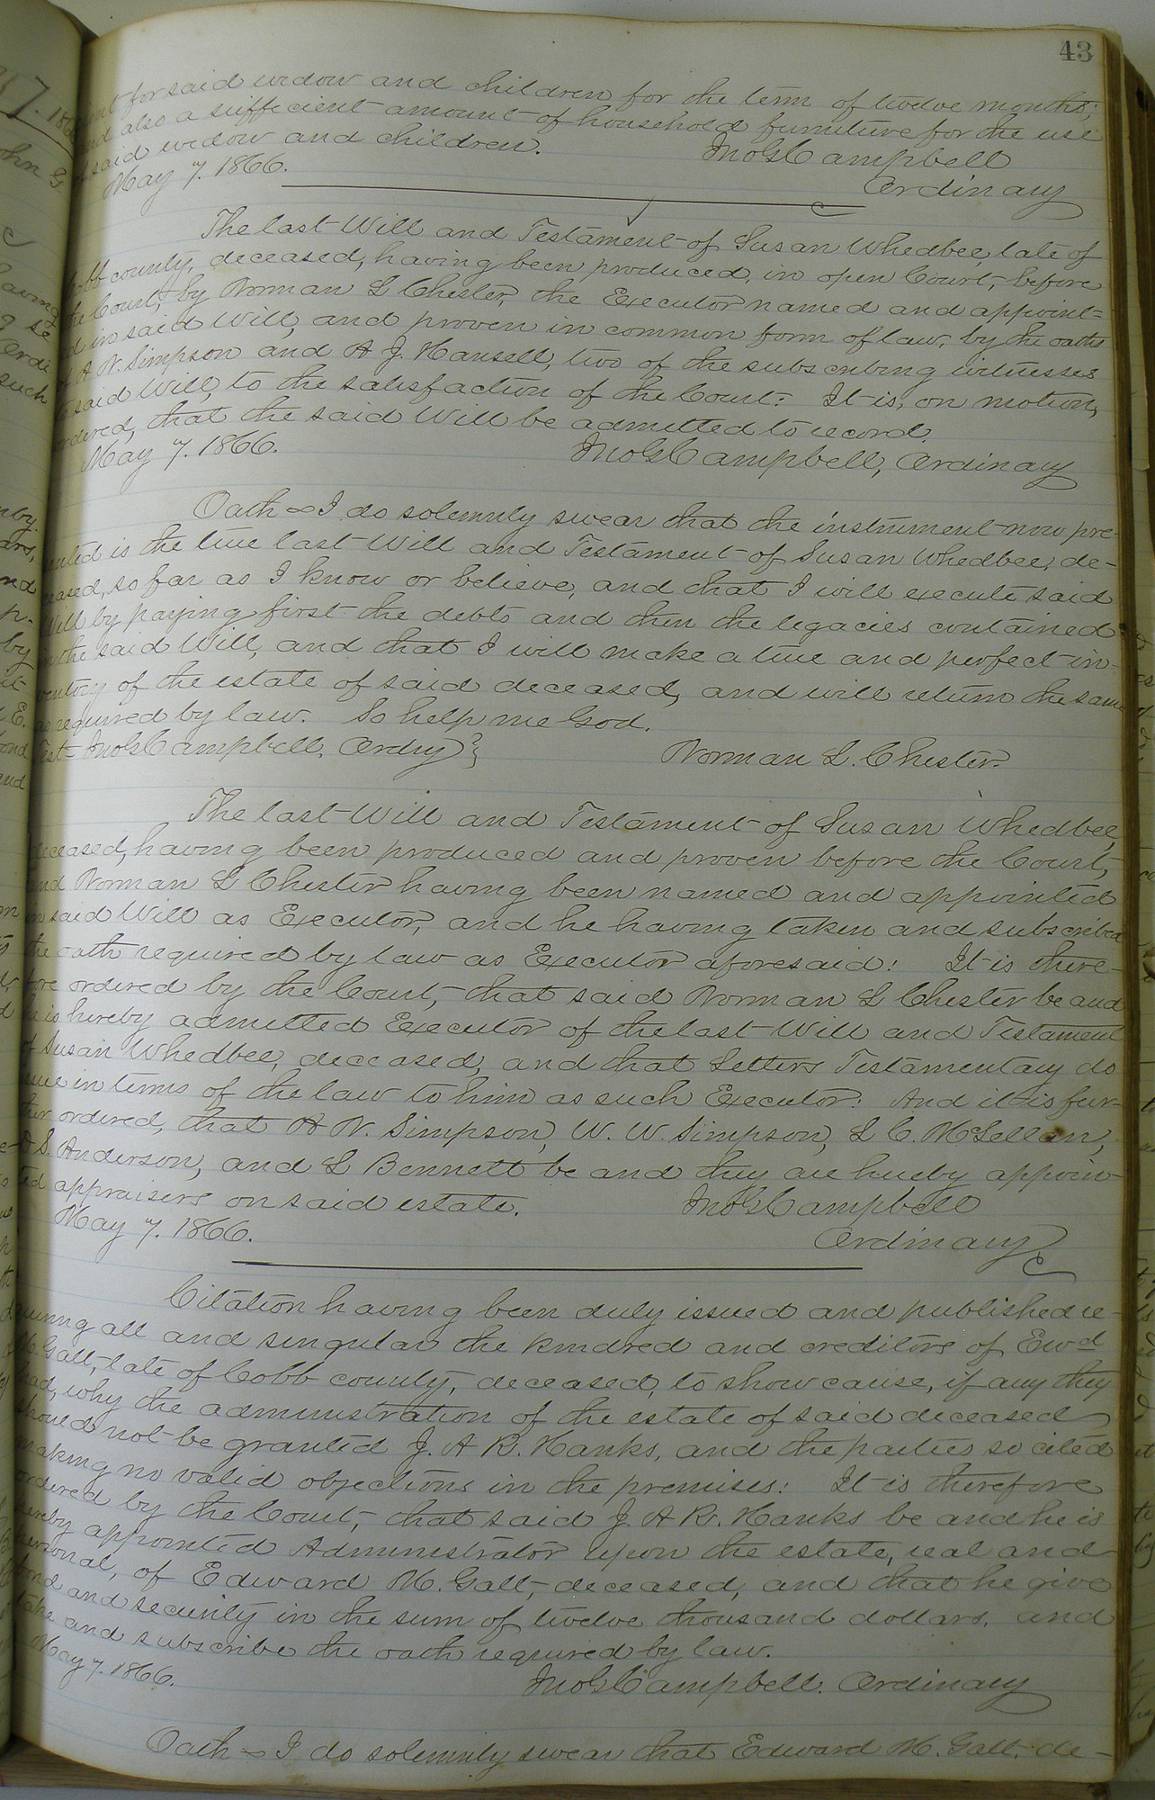 43
for said widow and children for the term of twelve months;
also a sufficient amount of household furniture for the use
said widow and children. Jno G Campbell
May 7. 1866. Ordinary
The last Will and Testament of Susan Whedbee, late of
Cobb county, deceased, having been produced, in open Court, before
the Court, by Norman L Chester, the Executor named and appoint-
ed in said Will, and proven in common form of law, by the oaths
of A N. Simpson and A J. Hansell, two of the subscribing witnesses
to said Will, to the satisfaction of the Court: It is, on motion,
ordered, that the said Will be admitted to record.
May 7. 1866. Jno G Campbell, Ordinary
Oath - I do solemnly swear that the instrument now pre-
sented is the true last Will and Testament of Susan Whedbee, de-
ceased, so far as I know or believe, and that I will execute said
Will by paying first the debts and then the legacies contained
in the said Will, and that I will make a true and perfect in-
ventory of the estate of said deceased, and will return the same
as required by law. So help me God.
Test Jno G Campbell, Ordry } Norman L. Chester.
The last Will and Testament of Susan Whedbee,
deceased, having been produced and proven before the Court,
and Norman L Chester having been named and appointed
in said Will as Executor, and he having taken and subscribed
the oath required by law as Executor aforesaid: It is there-
fore ordered by the Court, that said Norman L Chester be and
he is hereby admitted Executor of the last Will and Testament
of Susan Whedbee, deceased, and that Letters Testamentary do
issue in terms of the law to him as such Executor: And it is fur-
ther ordered, that A N. Simpson, W. W. Simpson, L C. McLellan,
S. Anderson, and L Bennett be and they are hereby appoin-
ted appraisers on said estate. Jno G Campbell
May 7. 1866. Ordinary
Citation having been duly issued and published re-
quiring all and singular the kindred and creditors of Ewd
M. Galt, late of Cobb county, deceased, to show cause, if any they
had, why the administration of the estate of said deceased
should not be granted J. A R. Hanks, and the parties so cited
making no valid objections in the premises: It is therefore
ordered by the Court, that said J. A R. Hanks be and he is
hereby appointed Administrator upon the estate, real and
personal, of Edward M. Galt, deceased, and that he give
bond and security in the sum of twelve thousand dollars, and
take and subscribe the oath required by law.
May 7. 1866. Jno G Campbell. Ordinary
Oath - I do solemnly swear that Edward M. Galt, de-